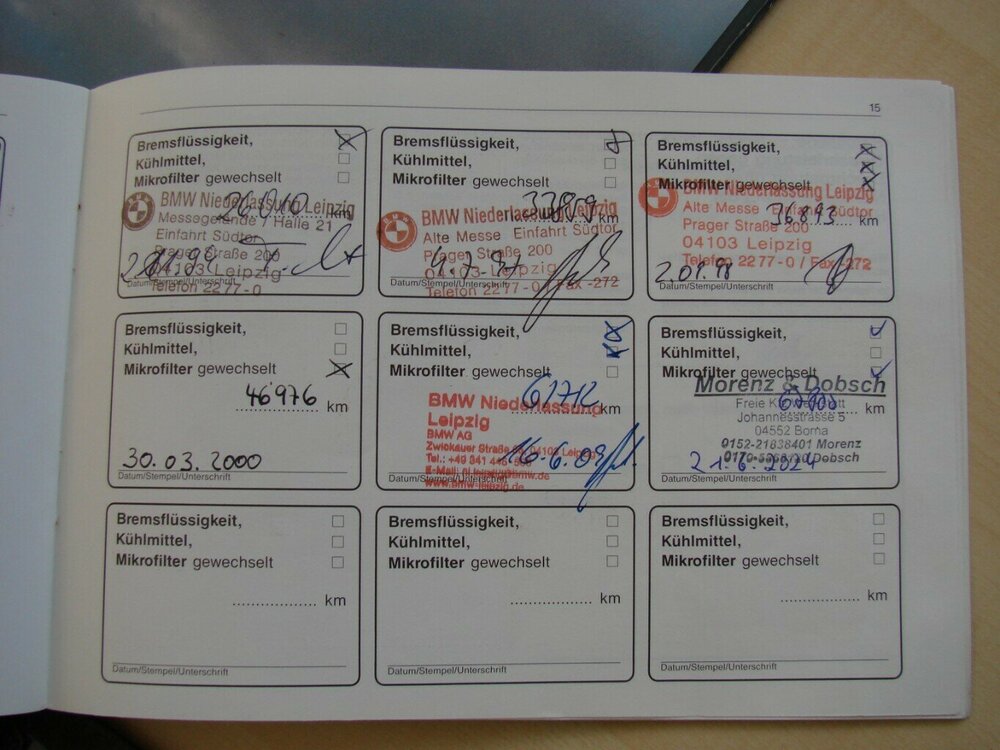 15
Bremsflüssigkeit,
Kühlmittel,
Mikrofilter gewechselt
BMW Niederlassung Leipzig
Messegelände / Halle 21
km
Einfahrt Südtor
Prager Straße 200
04103 Leipzig
Telefon 22 77-0
Datum/Stempel/Unterschrift
Bremsflüssigkeit,
Kühlmittel,
Mikrofilter gewechselt
33859
BMW Niederlassung Leipzig
km
Alte Messe Einfahrt Südtor
Prager Straße 200
04103 Leipzig
Telefon 22 77-0 / Fax -272
Datum/Stempel/Unterschrift
Bremsflüssigkeit,
Kühlmittel,
Mikrofilter gewechselt
BMW Niederlassung Leipzig
36893 km
Alte Messe Einfahrt Südtor
Prager Straße 200
04103 Leipzig
Telefon 22 77-0 / Fax -272
Datum/Stempel/Unterschrift
Bremsflüssigkeit,
Kühlmittel,
Mikrofilter gewechselt
46976 km
30.03.2000
Datum/Stempel/Unterschrift
Bremsflüssigkeit,
Kühlmittel,
Mikrofilter gewechselt
61712 km
BMW Niederlassung
Leipzig
BMW AG
Zwickauer Straße 04103 Leipzig
Tel.: +49 341
16.6.09
www.bmw-leipzig.de
Datum/Stempel/Unterschrift
Bremsflüssigkeit,
Kühlmittel,
Mikrofilter gewechselt
Morenz & Dobsch
km
Johannesstrasse 5
04552 Borna
0152-21838401 Morenz
Dobsch
21.6.2024
Datum/Stempel/Unterschrift
Bremsflüssigkeit,
Kühlmittel,
Mikrofilter gewechselt
km
Datum/Stempel/Unterschrift
Bremsflüssigkeit,
Kühlmittel,
Mikrofilter gewechselt
km
Datum/Stempel/Unterschrift
Bremsflüssigkeit,
Kühlmittel,
Mikrofilter gewechselt
km
Datum/Stempel/Unterschrift